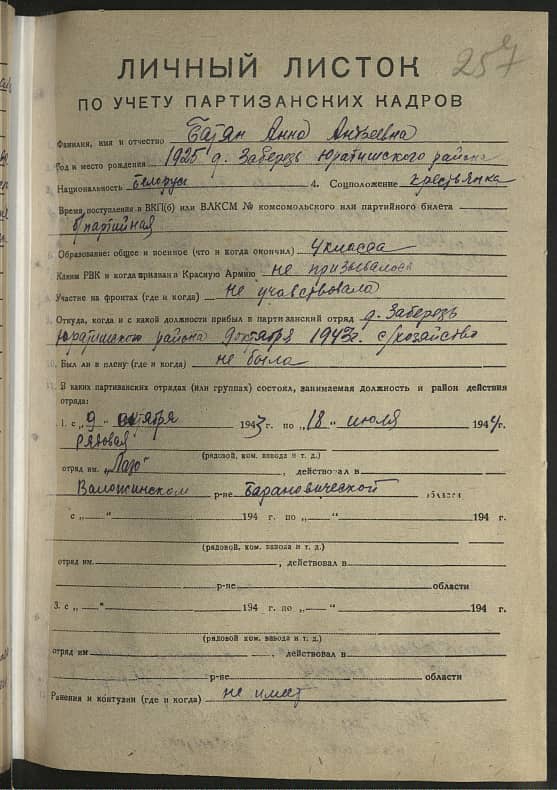 257
ЛИЧНЫЙ ЛИСТОК
ПО УЧЕТУ ПАРТИЗАНСКИХ КАДРОВ
Фамилия, имя и отчество Батян Анна Андреевна
Год и место рождения 1925 д. Заберезь Юратишского района
2. Национальность белорус 4. Соцположение крестьянка
Время поступления в ВКП(б) или ВЛКСМ № комсомольского или партийного билета
б/партийная
6. Образование: общее и военное (что и когда окончил) 4 класса
Каким РВК и когда призван в Красную Армию не призывалось
Участие на фронтах (где и когда) не учавствовала
Откуда, когда и с какой должности прибыл в партизанский отряд д. Заберезь
Юратишского района 9 октября 1943г. с/хозяйство
10. Был ли в плену (где и когда) не была
В каких партизанских отрядах (или группах) состоял, занимаемая должность и район действия
отряда:
1. с „9" октября 1943 г. по „18" июля 1944 г.
рядовая
(рядовой, ком. взвода и т. д.)
отряд им. „Лазо" , действовал в
Валожинском р-не Барановической области
с „ " 194 г. по „ " 194 г.
(рядовой, ком. взвода и т. д.)
отряд им. , действовал в
р-не области
3. с „ " 194 г. по „ " 194 г.
(рядовой ком. взвода и т. д.)
отряд им , действовал в
р-не области
Ранения и контузии (где и когда) не имеет